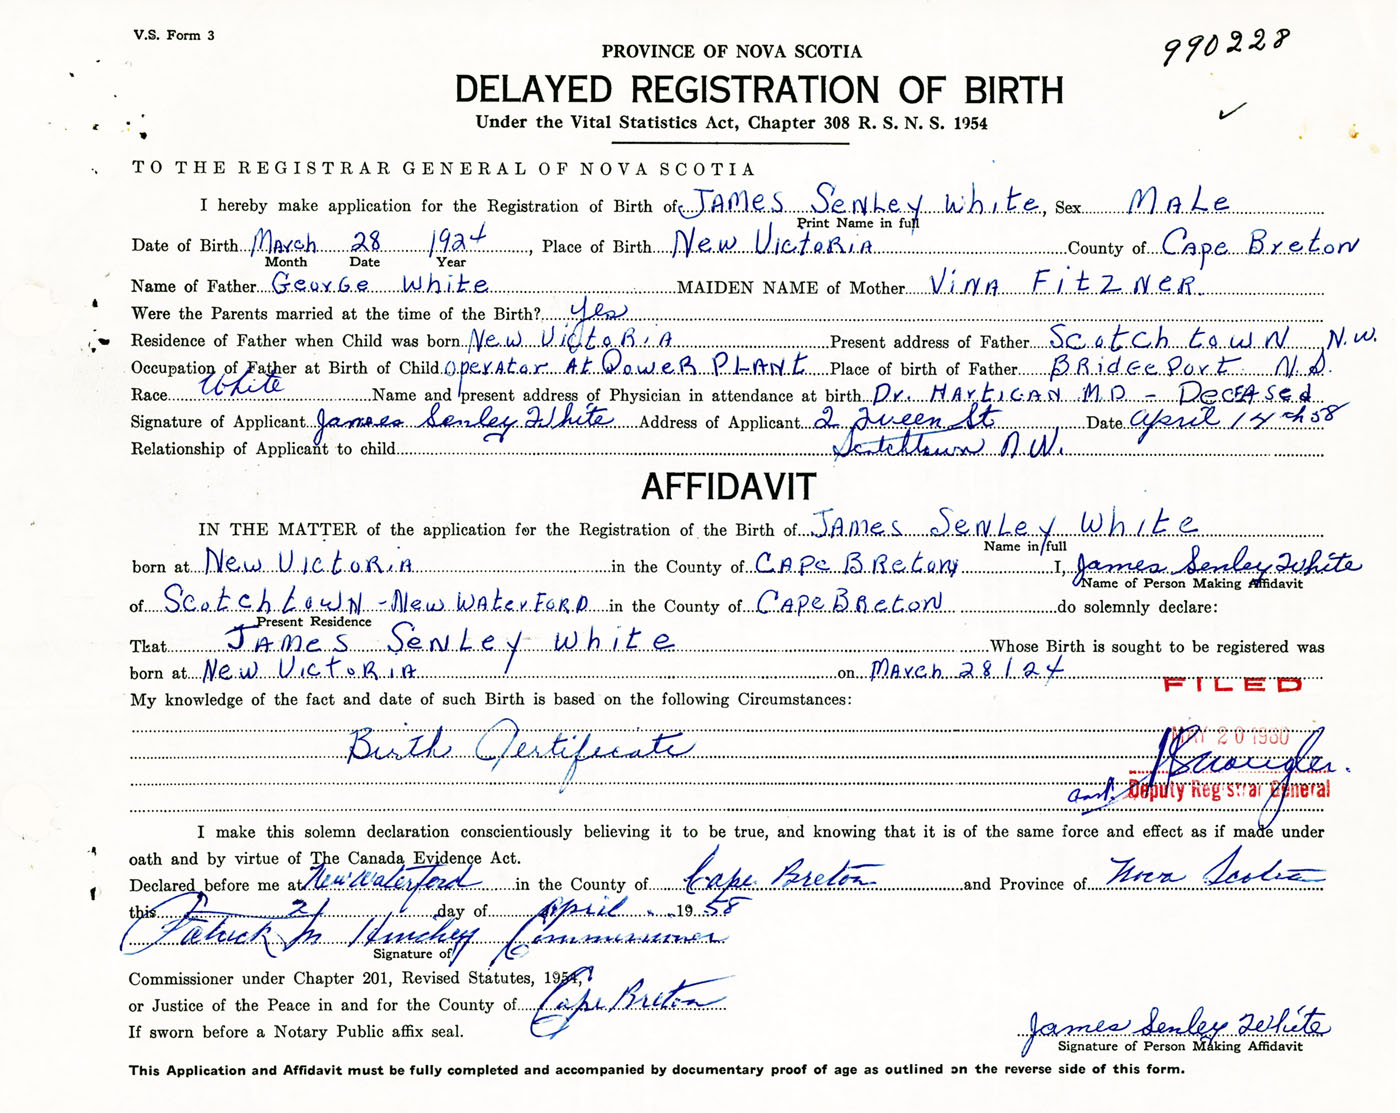 V.S. Form 3
990228
PROVINCE OF NOVA SCOTIA
DELAYED REGISTRATION OF BIRTH
Under the Vital Statistics Act, Chapter 308 R. S. N. S. 1954
TO THE REGISTRAR GENERAL OF NOVA SCOTIA
I hereby make application for the Registration of Birth of JAMES SENLEY White, Sex MALe
Print Name in full
Date of Birth March 28 1924, Place of Birth New Victoria County of Cape Breton
Month Date Year
Name of Father George White MAIDEN NAME of Mother VINA FITZNER
Were the Parents married at the time of the Birth? Yes
Residence of Father when Child was born New Victoria Present address of Father Scotchtown N.W.
Occupation of Father at Birth of Child Operator At Power PLANT Place of birth of Father BRIDGEPORT N.S.
Race White Name and present address of Physician in attendance at birth Dr. HARTIGAN M.D - DeceAsed
Signature of Applicant James Senley White Address of Applicant 2 Queen St Date April 14th 58
Relationship of Applicant to child Scotchtown N.W.
AFFIDAVIT
IN THE MATTER of the application for the Registration of the Birth of JAMES SENLEY White
Name in full
born at New Victoria in the County of CAPe BReton I, James Senley White
Name of Person Making Affidavit
of Scotchtown - New WATERFORD in the County of CAPE BRETON do solemnly declare:
Present Residence
That JAMES SENLEY White Whose Birth is sought to be registered was
born at New Victoria on March 28/24
FILED
My knowledge of the fact and date of such Birth is based on the following Circumstances:
MAY 20 1960
Birth Certificate
asst. Deputy Registrar General
I make this solemn declaration conscientiously believing it to be true, and knowing that it is of the same force and effect as if made under
oath and by virtue of The Canada Evidence Act.
Declared before me at New Waterford in the County of Cape Breton and Province of Nova Scotia
this 21 day of April 1958
Patrick M Hinchey Commissioner
Signature of
Commissioner under Chapter 201, Revised Statutes, 1954,
or Justice of the Peace in and for the County of Cape Breton
If sworn before a Notary Public affix seal.
James Senley White
Signature of Person Making Affidavit
This Application and Affidavit must be fully completed and accompanied by documentary proof of age as outlined on the reverse side of this form.